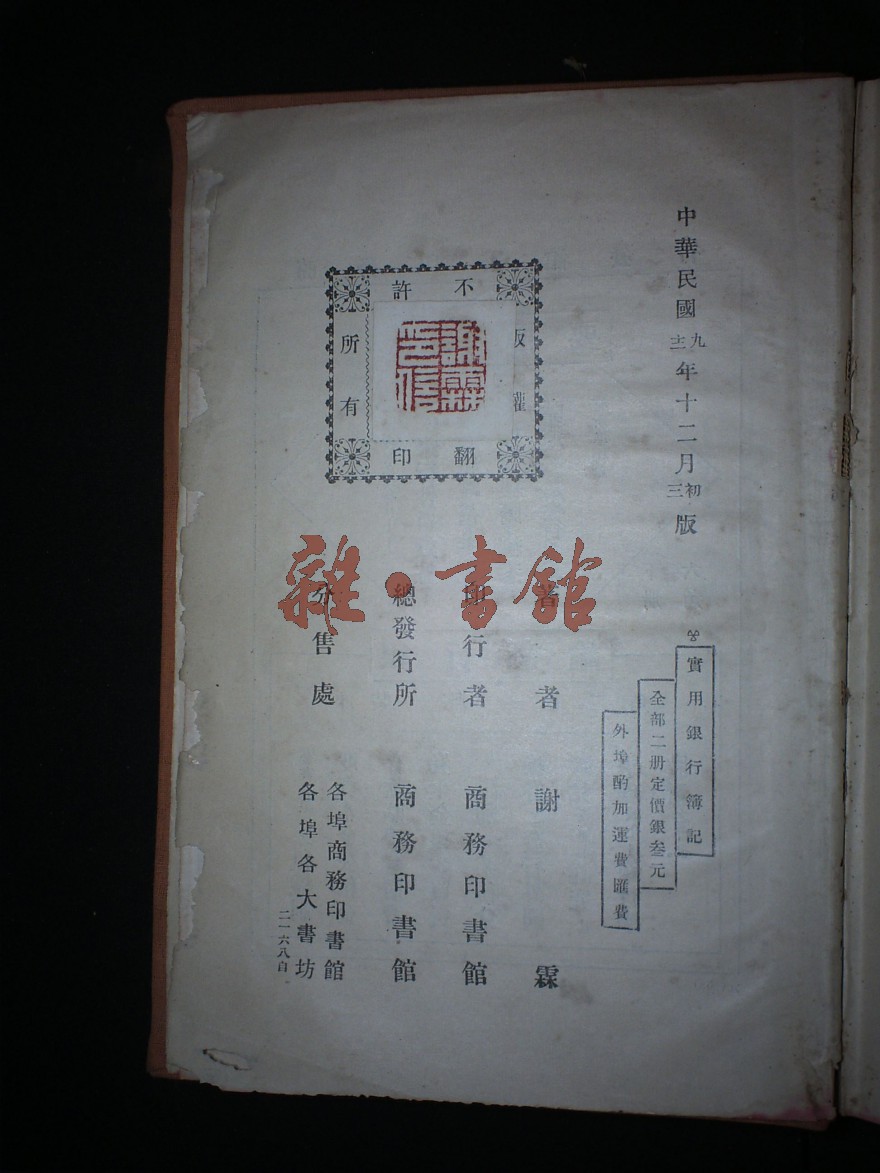 中華民國九年十二月初三版
實用銀行簿記
全部二册定價銀叁元
外埠酌加運費匯費
不許
版權
所有
翻印
謝霖
印信
著者 謝霖
印行者 商務印書館
總發行所 商務印書館
分售處 各埠商務印書館
各埠各大書坊
二一六八自
雜·書館